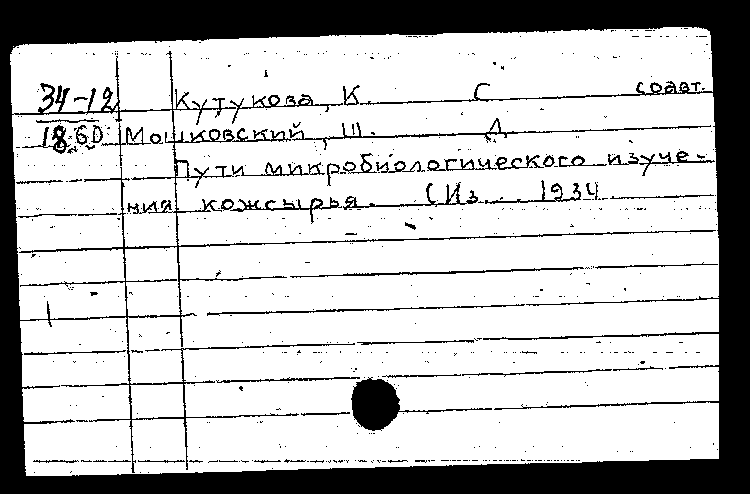 34-12 Кутукова, К. С. соавт.
18 Мошковский, Ш. Д.
Пути микробиологического изуче-
ния кожсырья. (Из... 1934